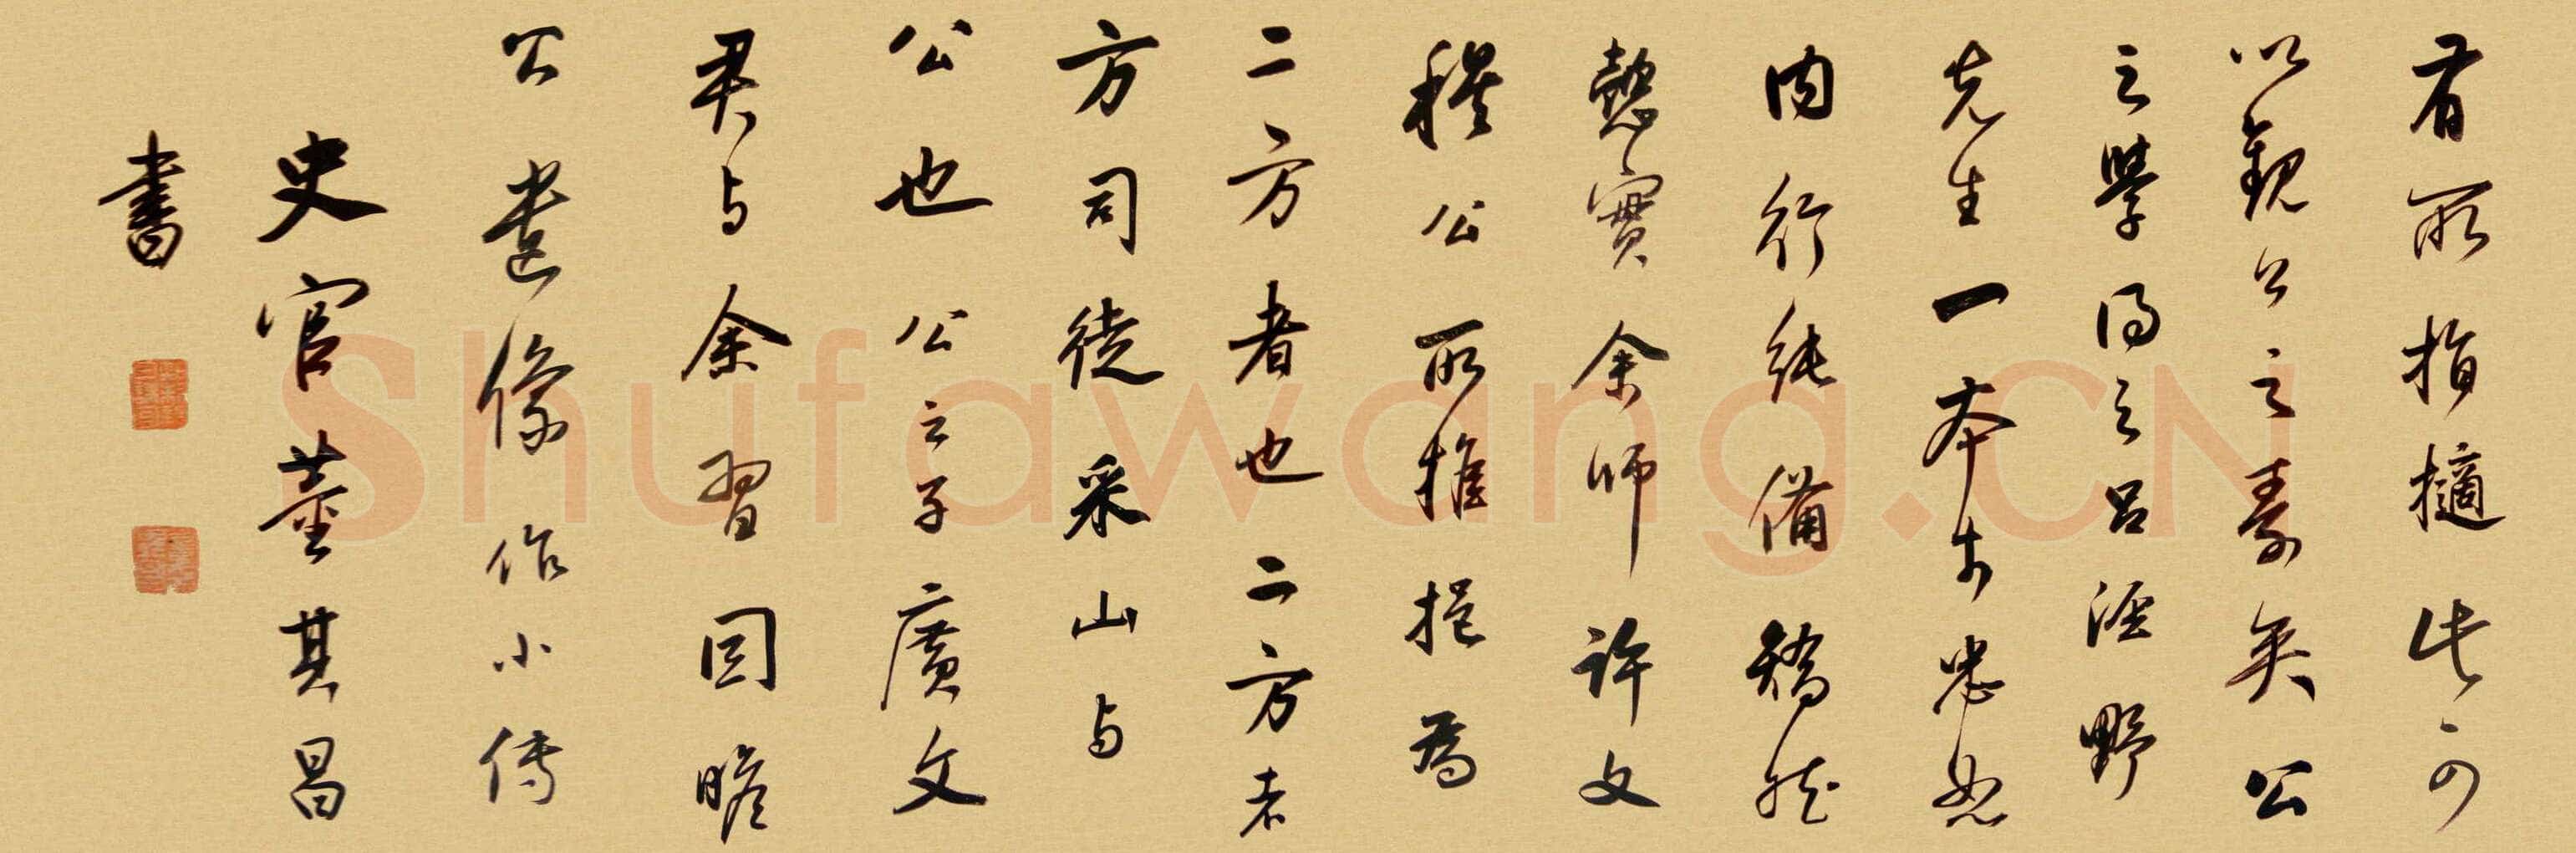 有所指擿此可
以觀公之素矣公
之學得之呂涇野
先生一本於忠恕
內行純備矯然
愨實余師許文
穆公所推挹為
二方者也二方者
方司徒采山與
公也公之子廣文
君與余習因瞻
公遺像作小傳
史官董其昌
書
Shufawang.CN